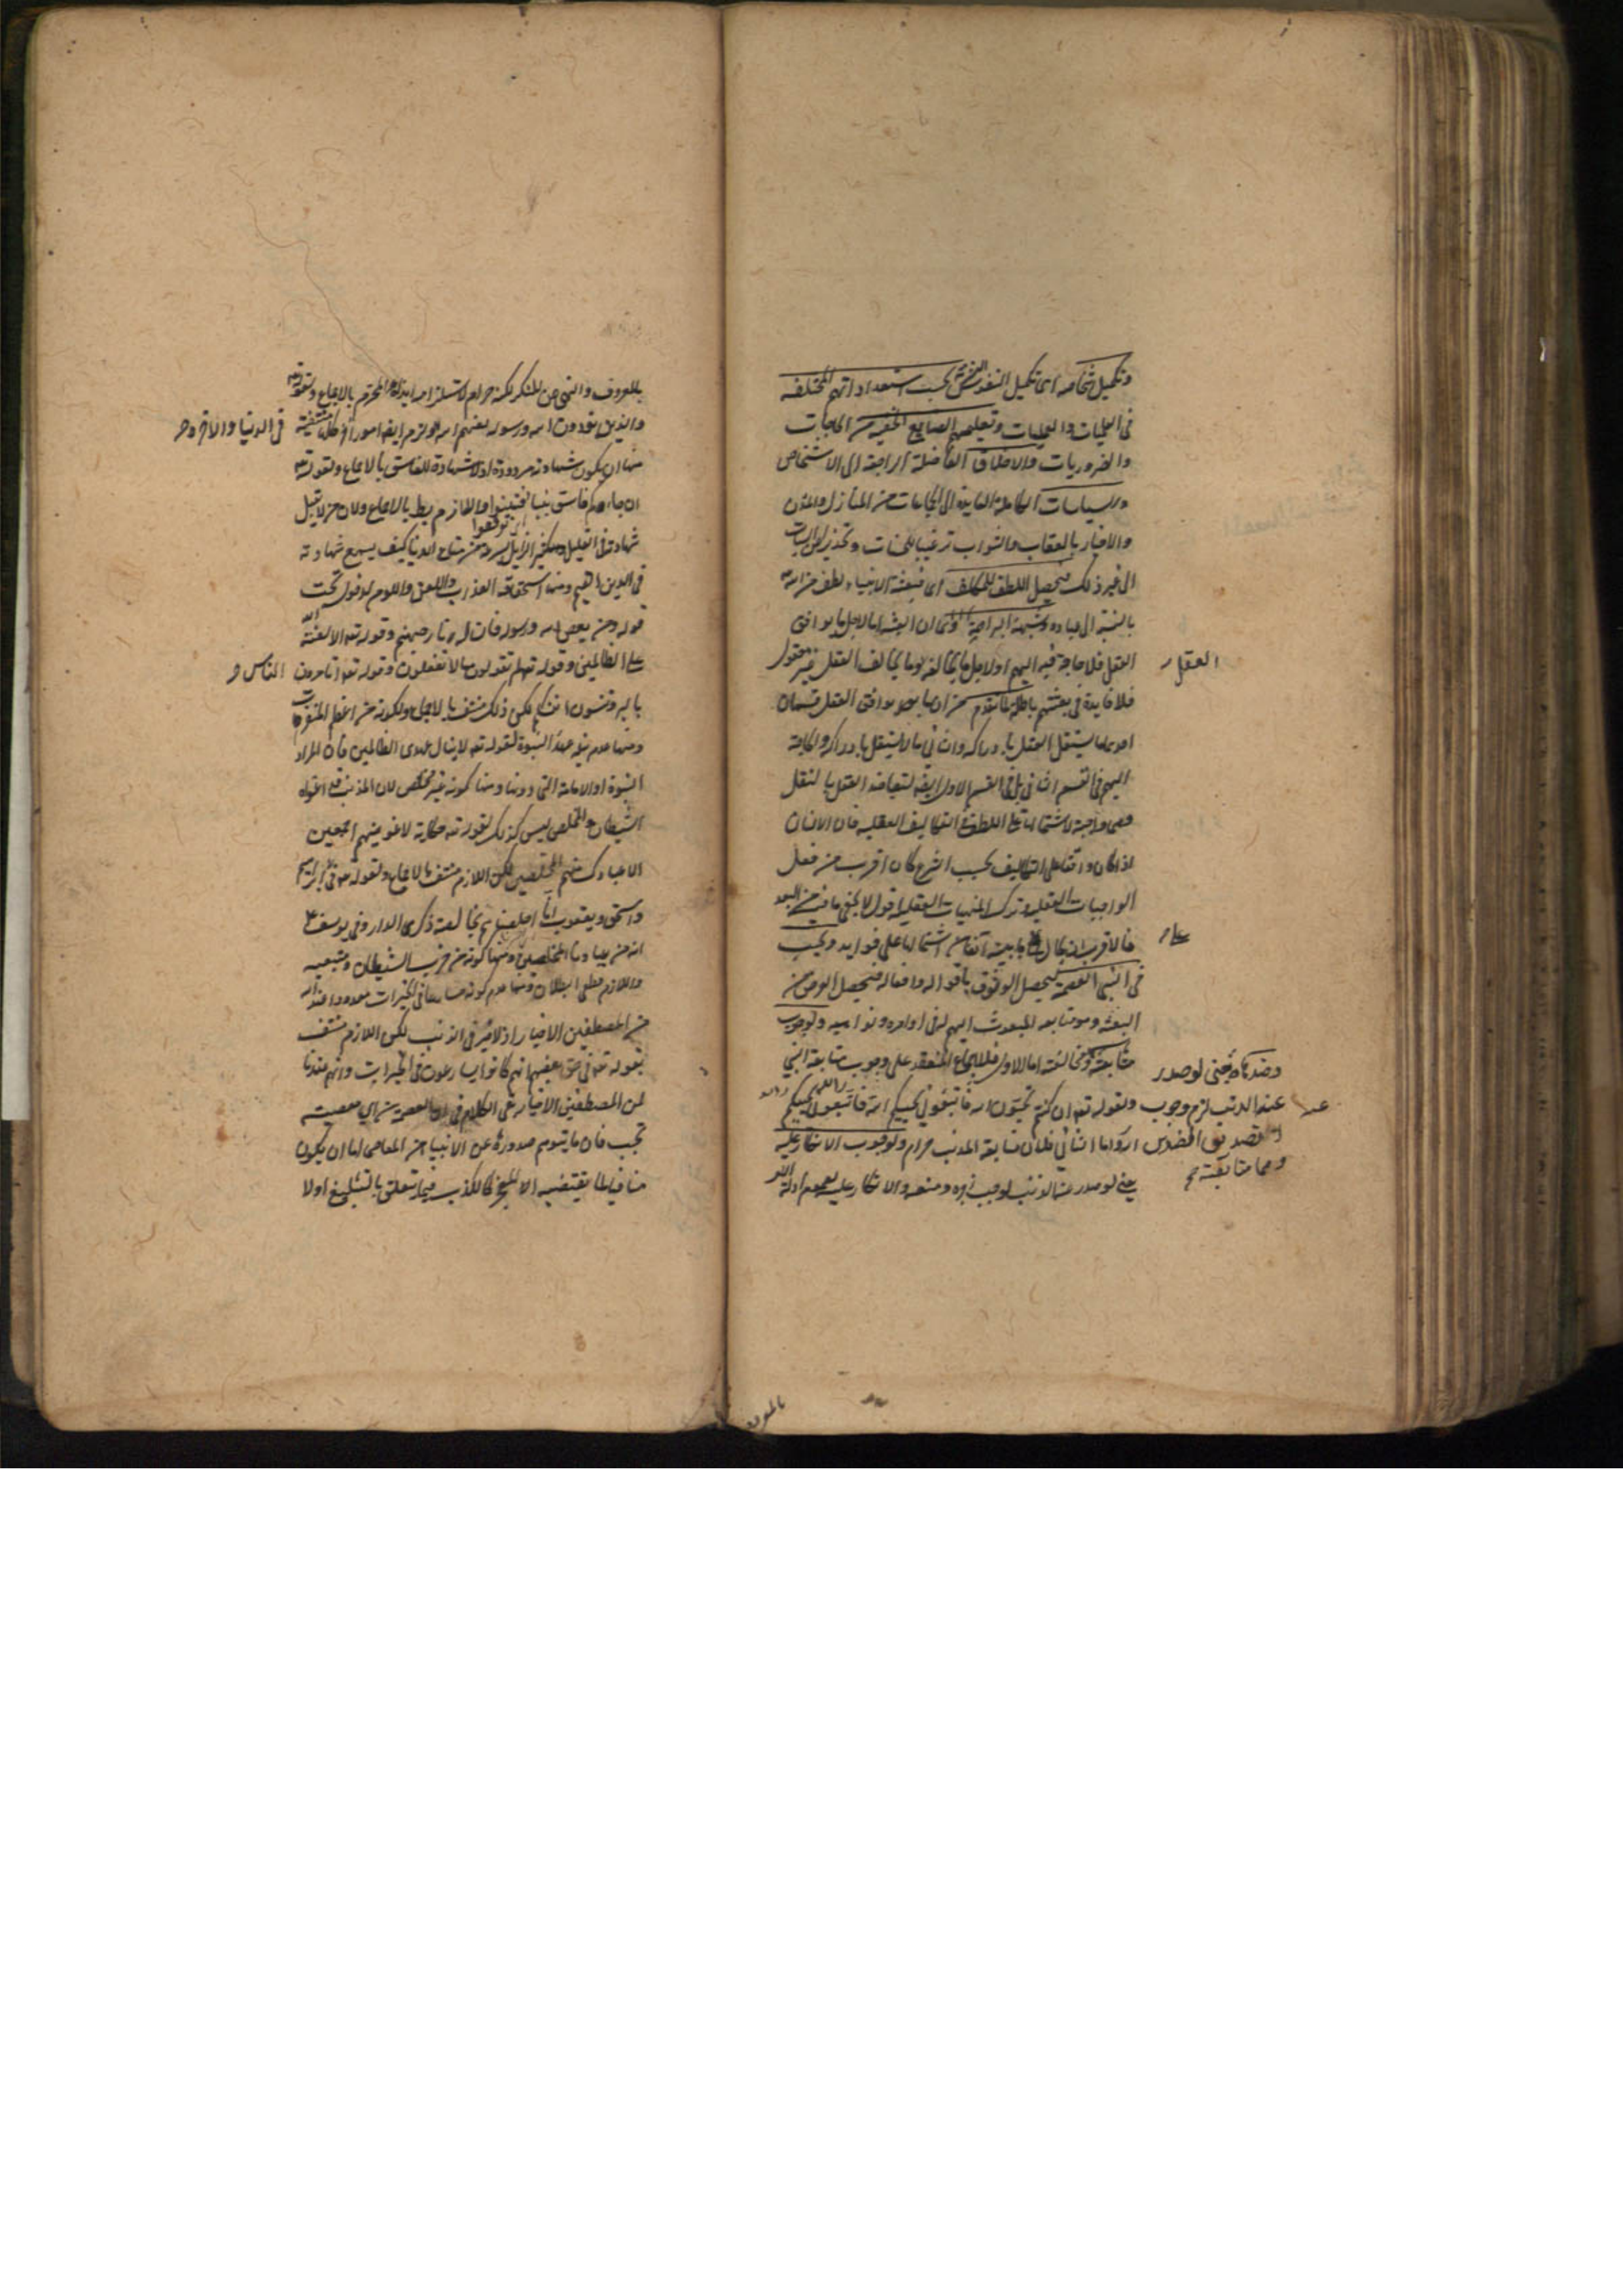 وتكميل اشخاصه اى تكميل النفوس البشرية بحسب استعداداتهم المختلفة
فى العلميات والعمليات وتعليمهم الصنايع الخفية من الحاجيات
والضروريات والاخلاق الفاضلة الراجعة الى الاشخاص
والسياسات الكاملة العايدة الى الجماعات من المنازل والمدن
والاخبار بالعقاب والثواب ترغيبا للحسنات وتحذيرا عن السيئات
الى غير ذلك فيحصل اللطف للمكلف اى فبعثة الانبياء لطف من الله تع
بالنسبة الى عباده وشبهة البراهمة وهى ان البعثة اما لاجل ما يوافق
العقل فلا حاجة فيه اليهم او لاجل ما يخالفه وما يخالف العقل غير مقبول
العقل
فلا فايدة فى بعثتهم باطلة لما تقدم من ان ما يوافق العقل قسمان
احدهما يستقل العقل بادراكه والثانى ما لا يستقل بادراكه والحاجة
اليهم فى القسم الثانى بل فى القسم الاول ايضا لتعاضد العقل بالنقل
وهى واجبة لاشتمالها على اللطف فى التكاليف العقلية فان الانسان
اذا كان واقفا على التكاليف بحسب الشرع كان اقرب من فعل
الواجبات العقلية وترك المنهيات العقلية اقول لا يخفى ما فيه من البعد
فالاقرب ان يقال ما بينه آنفا من اشتمالها على فوايد ويجب
فى النبى العصمة ليحصل الوثوق بافواله وافعاله فيحصل الغرض من
البعثة وهو متابعة المبعوث اليهم له فى اوامره ونواهيه ولوجوب
متابعته ومخالفته اما الاول فللاجماع المنعقد على وجوب متابعة النبى
وضدها يعنى لو صدر
ولقوله تع ان كنتم تحبون الله فاتبعونى يحببكم الله
عنه الذنب لزم وجوب
واما الثانى فلان متابعة المذنب حرام ولوجوب الانكار عليه
يعنى لو صدر عنه الذنب لوجب زجره ومنعه والانكار عليه لعموم ادلة الامر
بالمعروف
بالمعروف والنهى عن المنكر لكنه حرام لاستلزامه ايذاءه المحرم بالاجماع ولقوله تع
والذين يؤذون الله ورسوله لعنهم الله ولزم ايضا امور اخر كلها منتفية
فى الدنيا والآخرة
منها ان يكون شهادته مردودة اذ لا شهادة للفاسق بالاجماع ولقوله تع
ان جاءكم فاسق بنبا فتبينوا واللازم بط بالاجماع ولان من لا تقبل
شهادته فى القليل الزايل بسرعة من متاع الدنيا كيف يسمع شهادته
فى الدين القيم ومنها استحقاقه العذاب واللعن واللوم لدخوله تحت
قوله ومن يعص الله ورسوله فان له نار جهنم وقوله تع الا لعنة الله
على الظالمين وقوله تع لم تقولون ما لا تفعلون وقوله تع اتامرون
الناس
بالبر وتنسون انفسكم لكن ذلك منتف بالاجماع ولكونه من اعظم المنفرات
ومنها عدم نيله عهد النبوة لقوله تع لا ينال عهدى الظالمين فان المراد
النبوة او الامامة التى دونها ومنها كونه غير مخلص لان المذنب قد اغواه
الشيطان والمخلص ليس كذلك لقوله تع حكاية لاغوينهم اجمعين
الا عبادك منهم المخلصين لكن اللازم منتف بالاجماع ولقوله تع فى ابراهيم
واسحق ويعقوب انا اخلصناهم بخالصة ذكرى الدار وفى يوسف
انه من عبادنا المخلصين ومنها كونه من حزب الشيطان ومتبعيه
واللازم قطعى البطلان ومنها عدم كونه مسارعا فى الخيرات معدودا عند الله
من المصطفين الاخيار اذ لا خير فى الذنب لكن اللازم منتف
بقوله تع فى حق بعضهم انهم كانوا يسارعون فى الخيرات وانهم عندنا
لمن المصطفين الاخيار بقى الكلام فى ان العصمة من اى معصية
تجب فان ما يتوهم صدوره عن الانبياء من المعاصى اما ان يكون
منافيا لما يقتضيه المعجز كالكذب فيما يتعلق بالتبليغ او لا